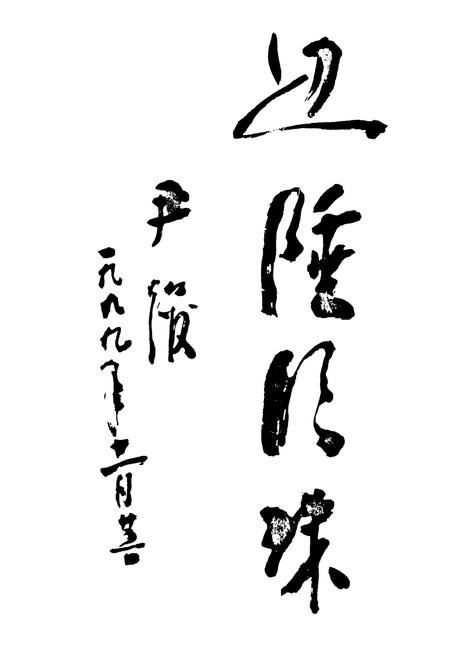 边陲明珠
尹
一九九九年十二月廿